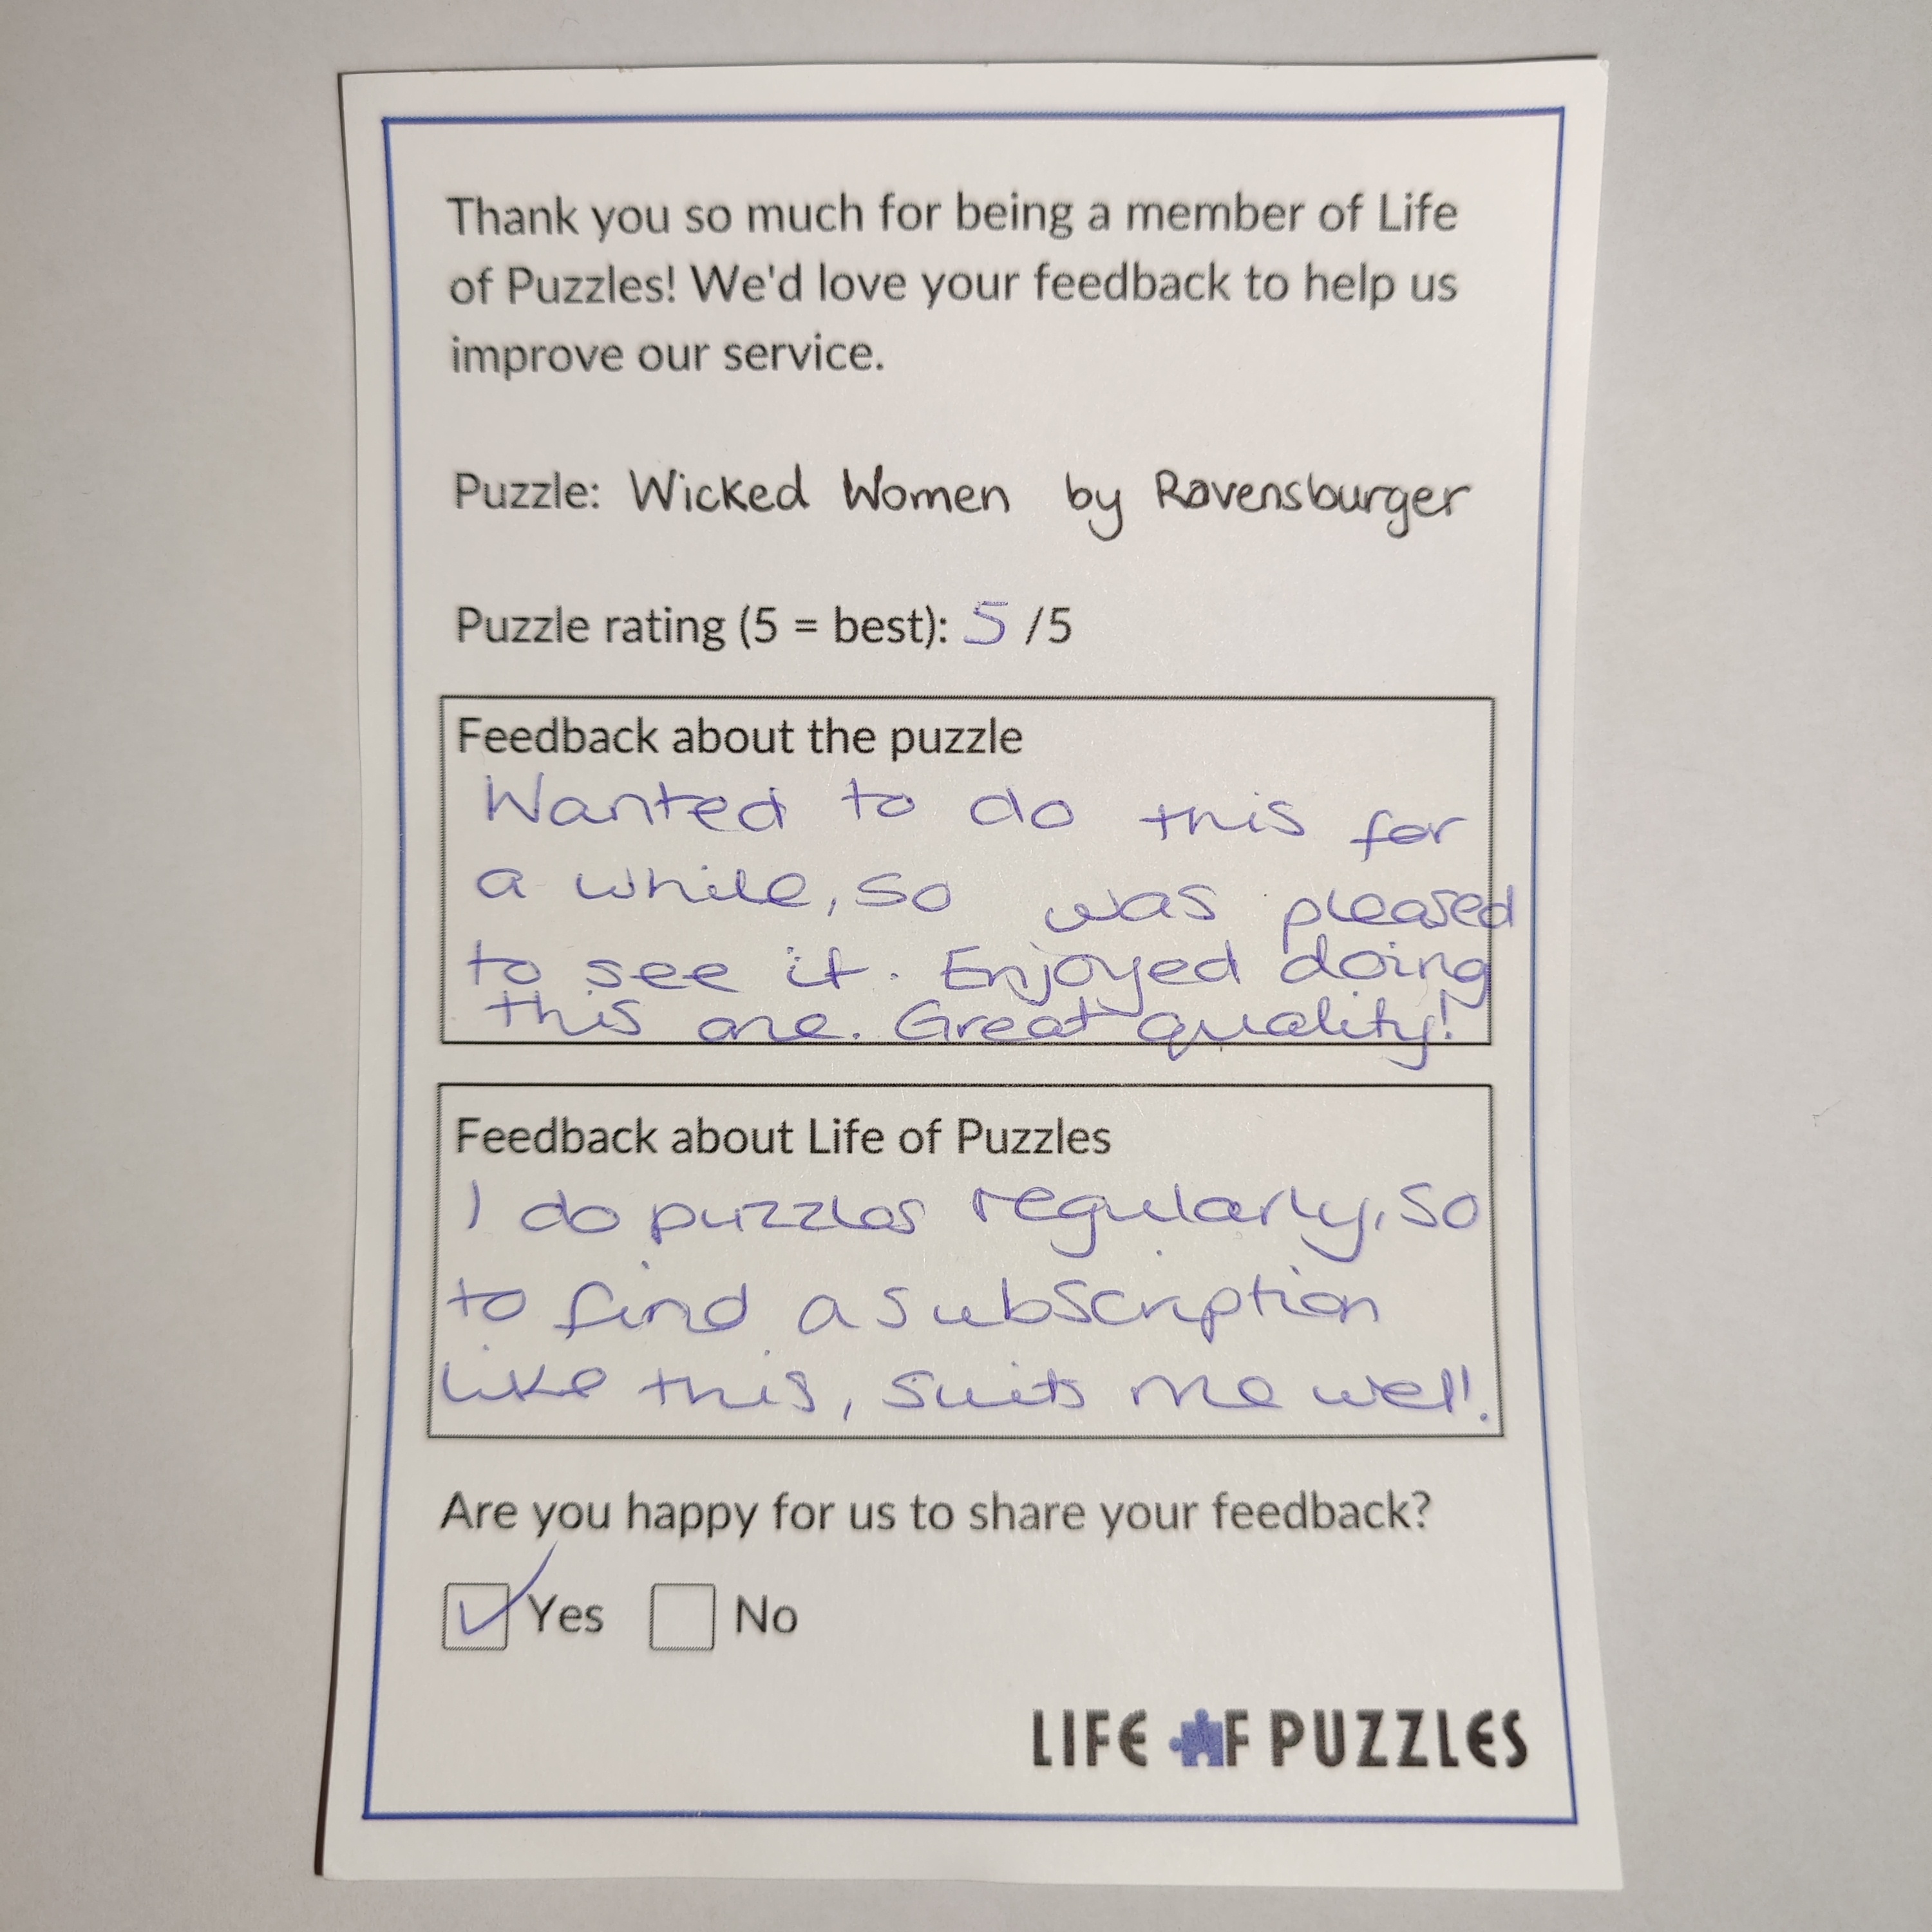 Thank you so much for being a member of Life
of Puzzles! We'd love your feedback to help us
improve our service.
Puzzle: Wicked Women by Ravensburger
Puzzle rating (5 = best): 5 /5
Feedback about the puzzle
Wanted to do this for
a while, so was pleased
to see it. Enjoyed doing
this one. Great quality!
Feedback about Life of Puzzles
I do puzzles regularly, so
to find a subscription
like this, suits me well!
Are you happy for us to share your feedback?
Yes No
LIFE OF PUZZLES